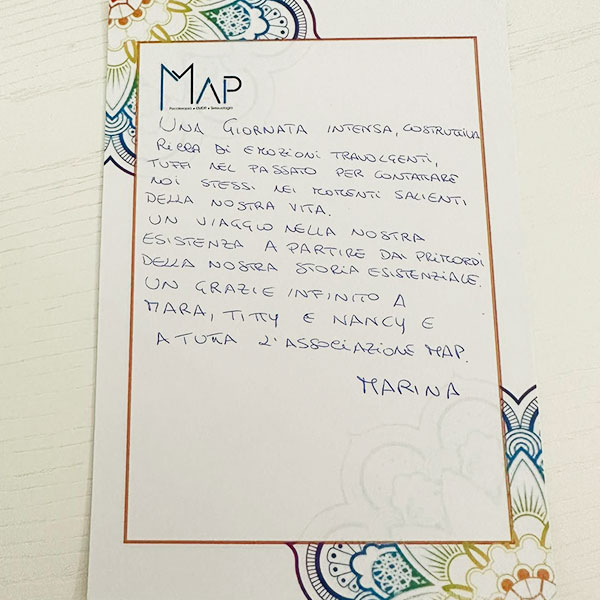 MAP
UNA GIORNATA INTENSA, COSTRUTTIVA
RICCA DI EMOZIONI TRAVOLGENTI,
TUFFI NEL PASSATO PER CONTATTARE
NOI STESSI NEI MOMENTI SALIENTI
DELLA NOSTRA VITA.
UN VIAGGIO NELLA NOSTRA
ESISTENZA A PARTIRE DAI PRIMORDI
DELLA NOSTRA STORIA ESISTENZIALE.
UN GRAZIE INFINITO A
MARA, TITTY E NANCY E
A TUTTA L'ASSOCIAZIONE MAP.
MARINA